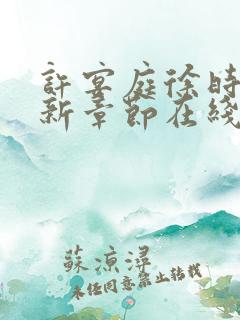 許宴庭徐時
新章節在綫
蘇涼潯
未经同意禁止转载